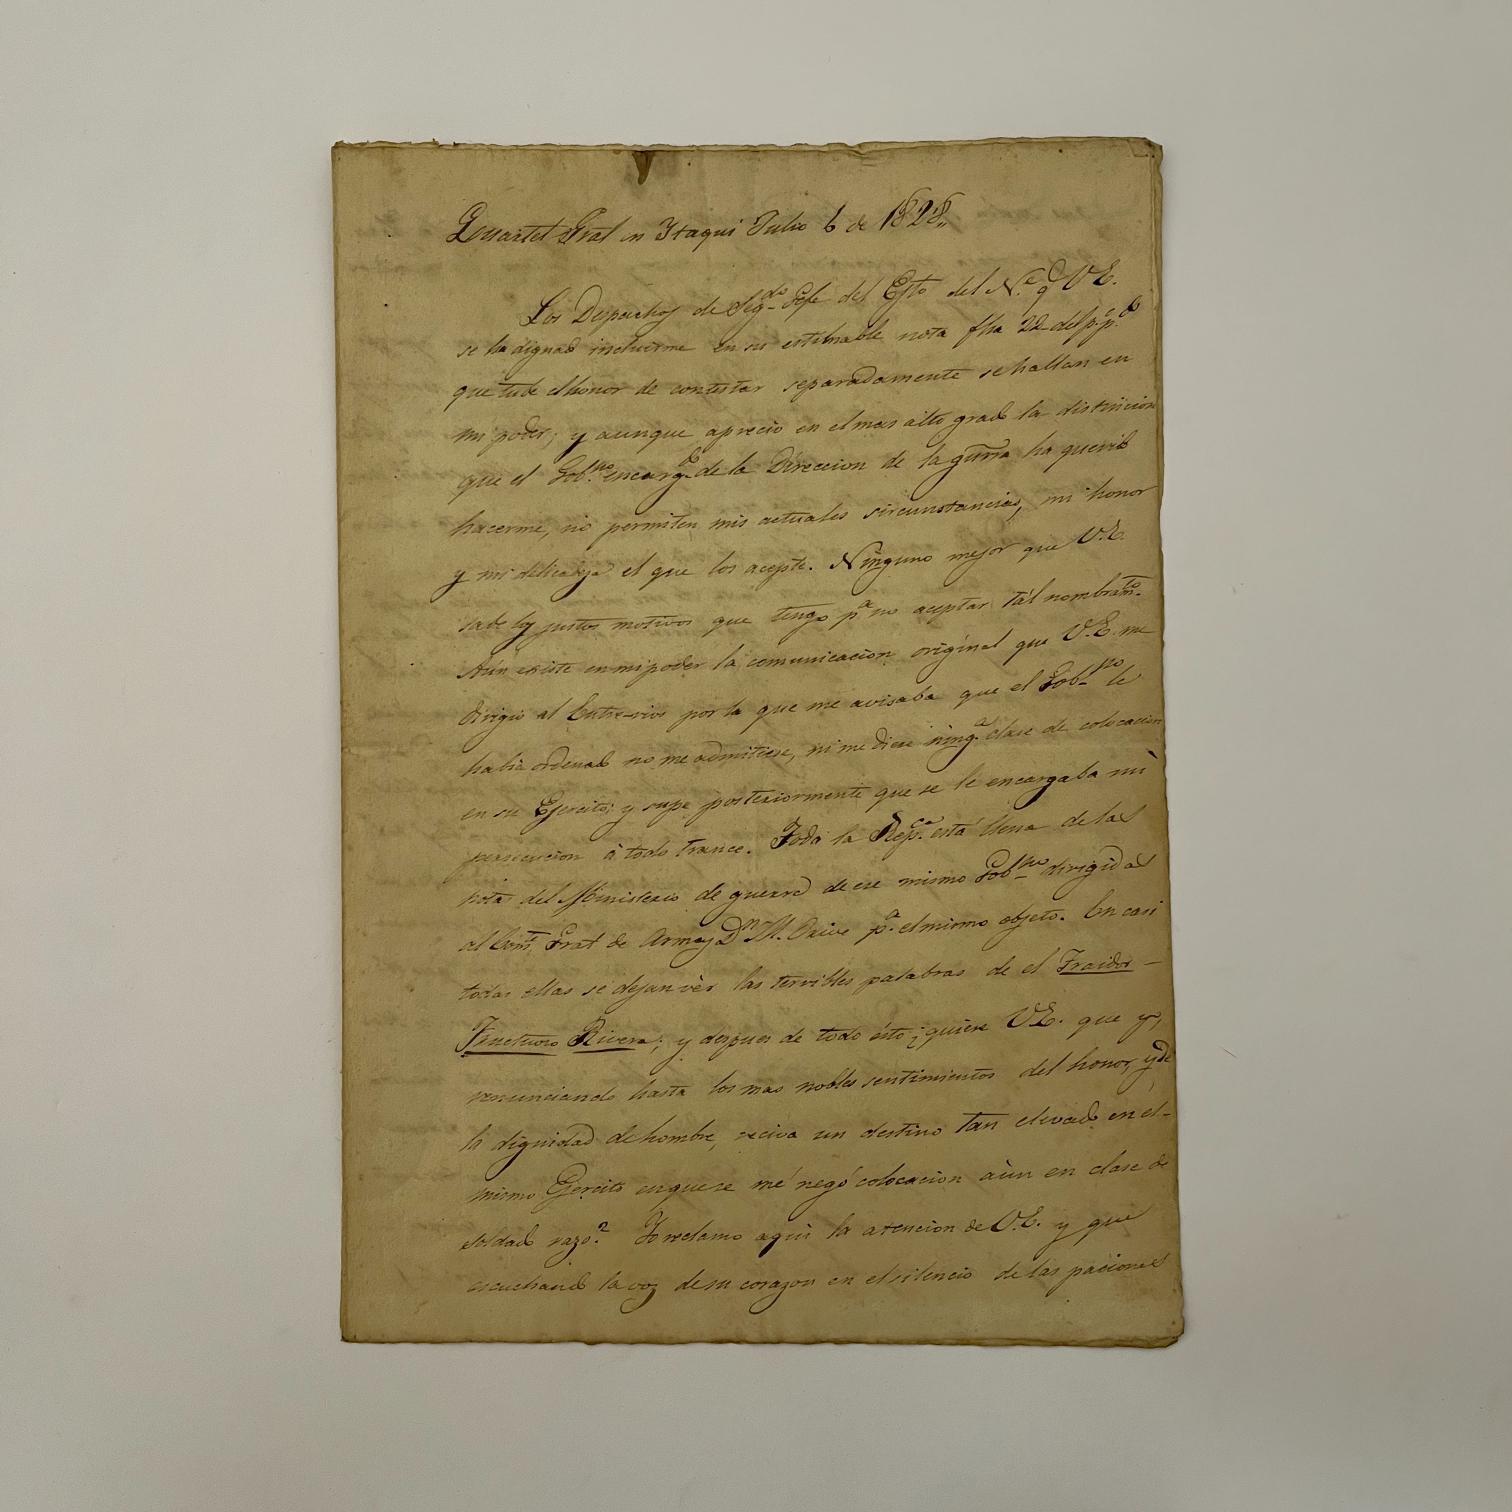 Quartel Gral en Ytaqui Julio 6 de 1828„
Los Despachos de Seg.do Gefe del Egto del N.e q V.E.
se ha dignado incluirme en su estimable nota fha 22 del p.p.do
que tube el honor de contestar separadamente se hallan en
mi poder; y aunque aprecio en el mas alto grado la distincion
que el Gob.no encarg.do de la Direccion de la guerra ha querido
hacerme, no permiten mis actuales sircunstancias, mi honor
y mi delicadeza el que los acepte. Ninguno mejor que V.E.
sabe los justos motivos que tengo p.a no aceptar tál nombram.to
Aún existe en mi poder la comunicacion original que V.E. me
dirigio al Entre-rios por la que me avisaba que el Gob.no le
habia ordenado no me admitiese, ni me diese ning.a clase de colocacion
en su Egercito; y supe posteriormente que se le encargaba mi
persecucion à todo trance. Toda la Rep.ca está llena de las
notas del Ministerio de guerra de ese mismo Gob.no dirigidas
al Com.te Gral de Armas Dn M. Orive p.a el mismo objeto. En casi
todas ellas se dejan vèr las terribles palabras de el Traidor –
Fructuoso Rivera; y despues de todo ésto ¿quiere V.E. que yo,
renunciando hasta los mas nobles sentimientos del honor, y de
la dignidad de hombre, reciva un destino tan elevado en el –
mismo Egercito en que se me negó colocacion aùn en clase de
soldado razo? Yo reclamo aqui la atencion de V.E. y que
escuchando la voz de su corazon en el silencio de las paciones